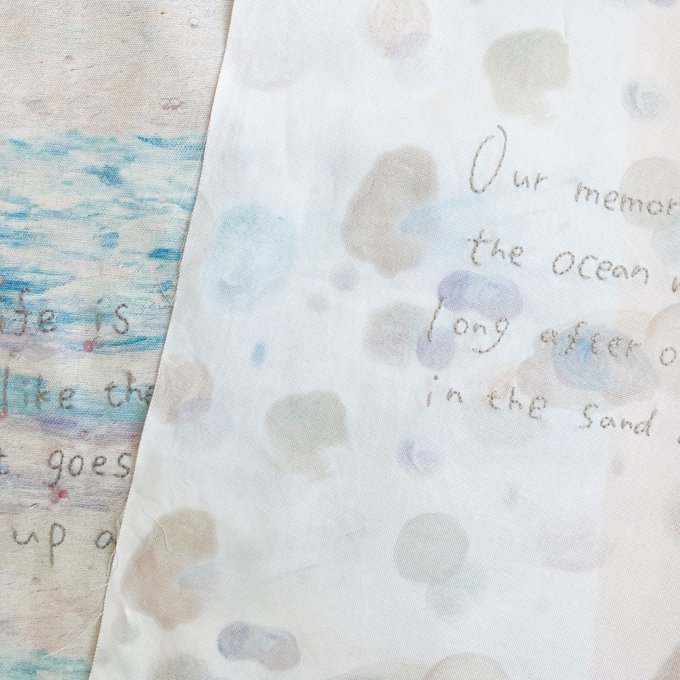 life is
like the
goes
up a
Our memor
the ocean
long after o
in the sand